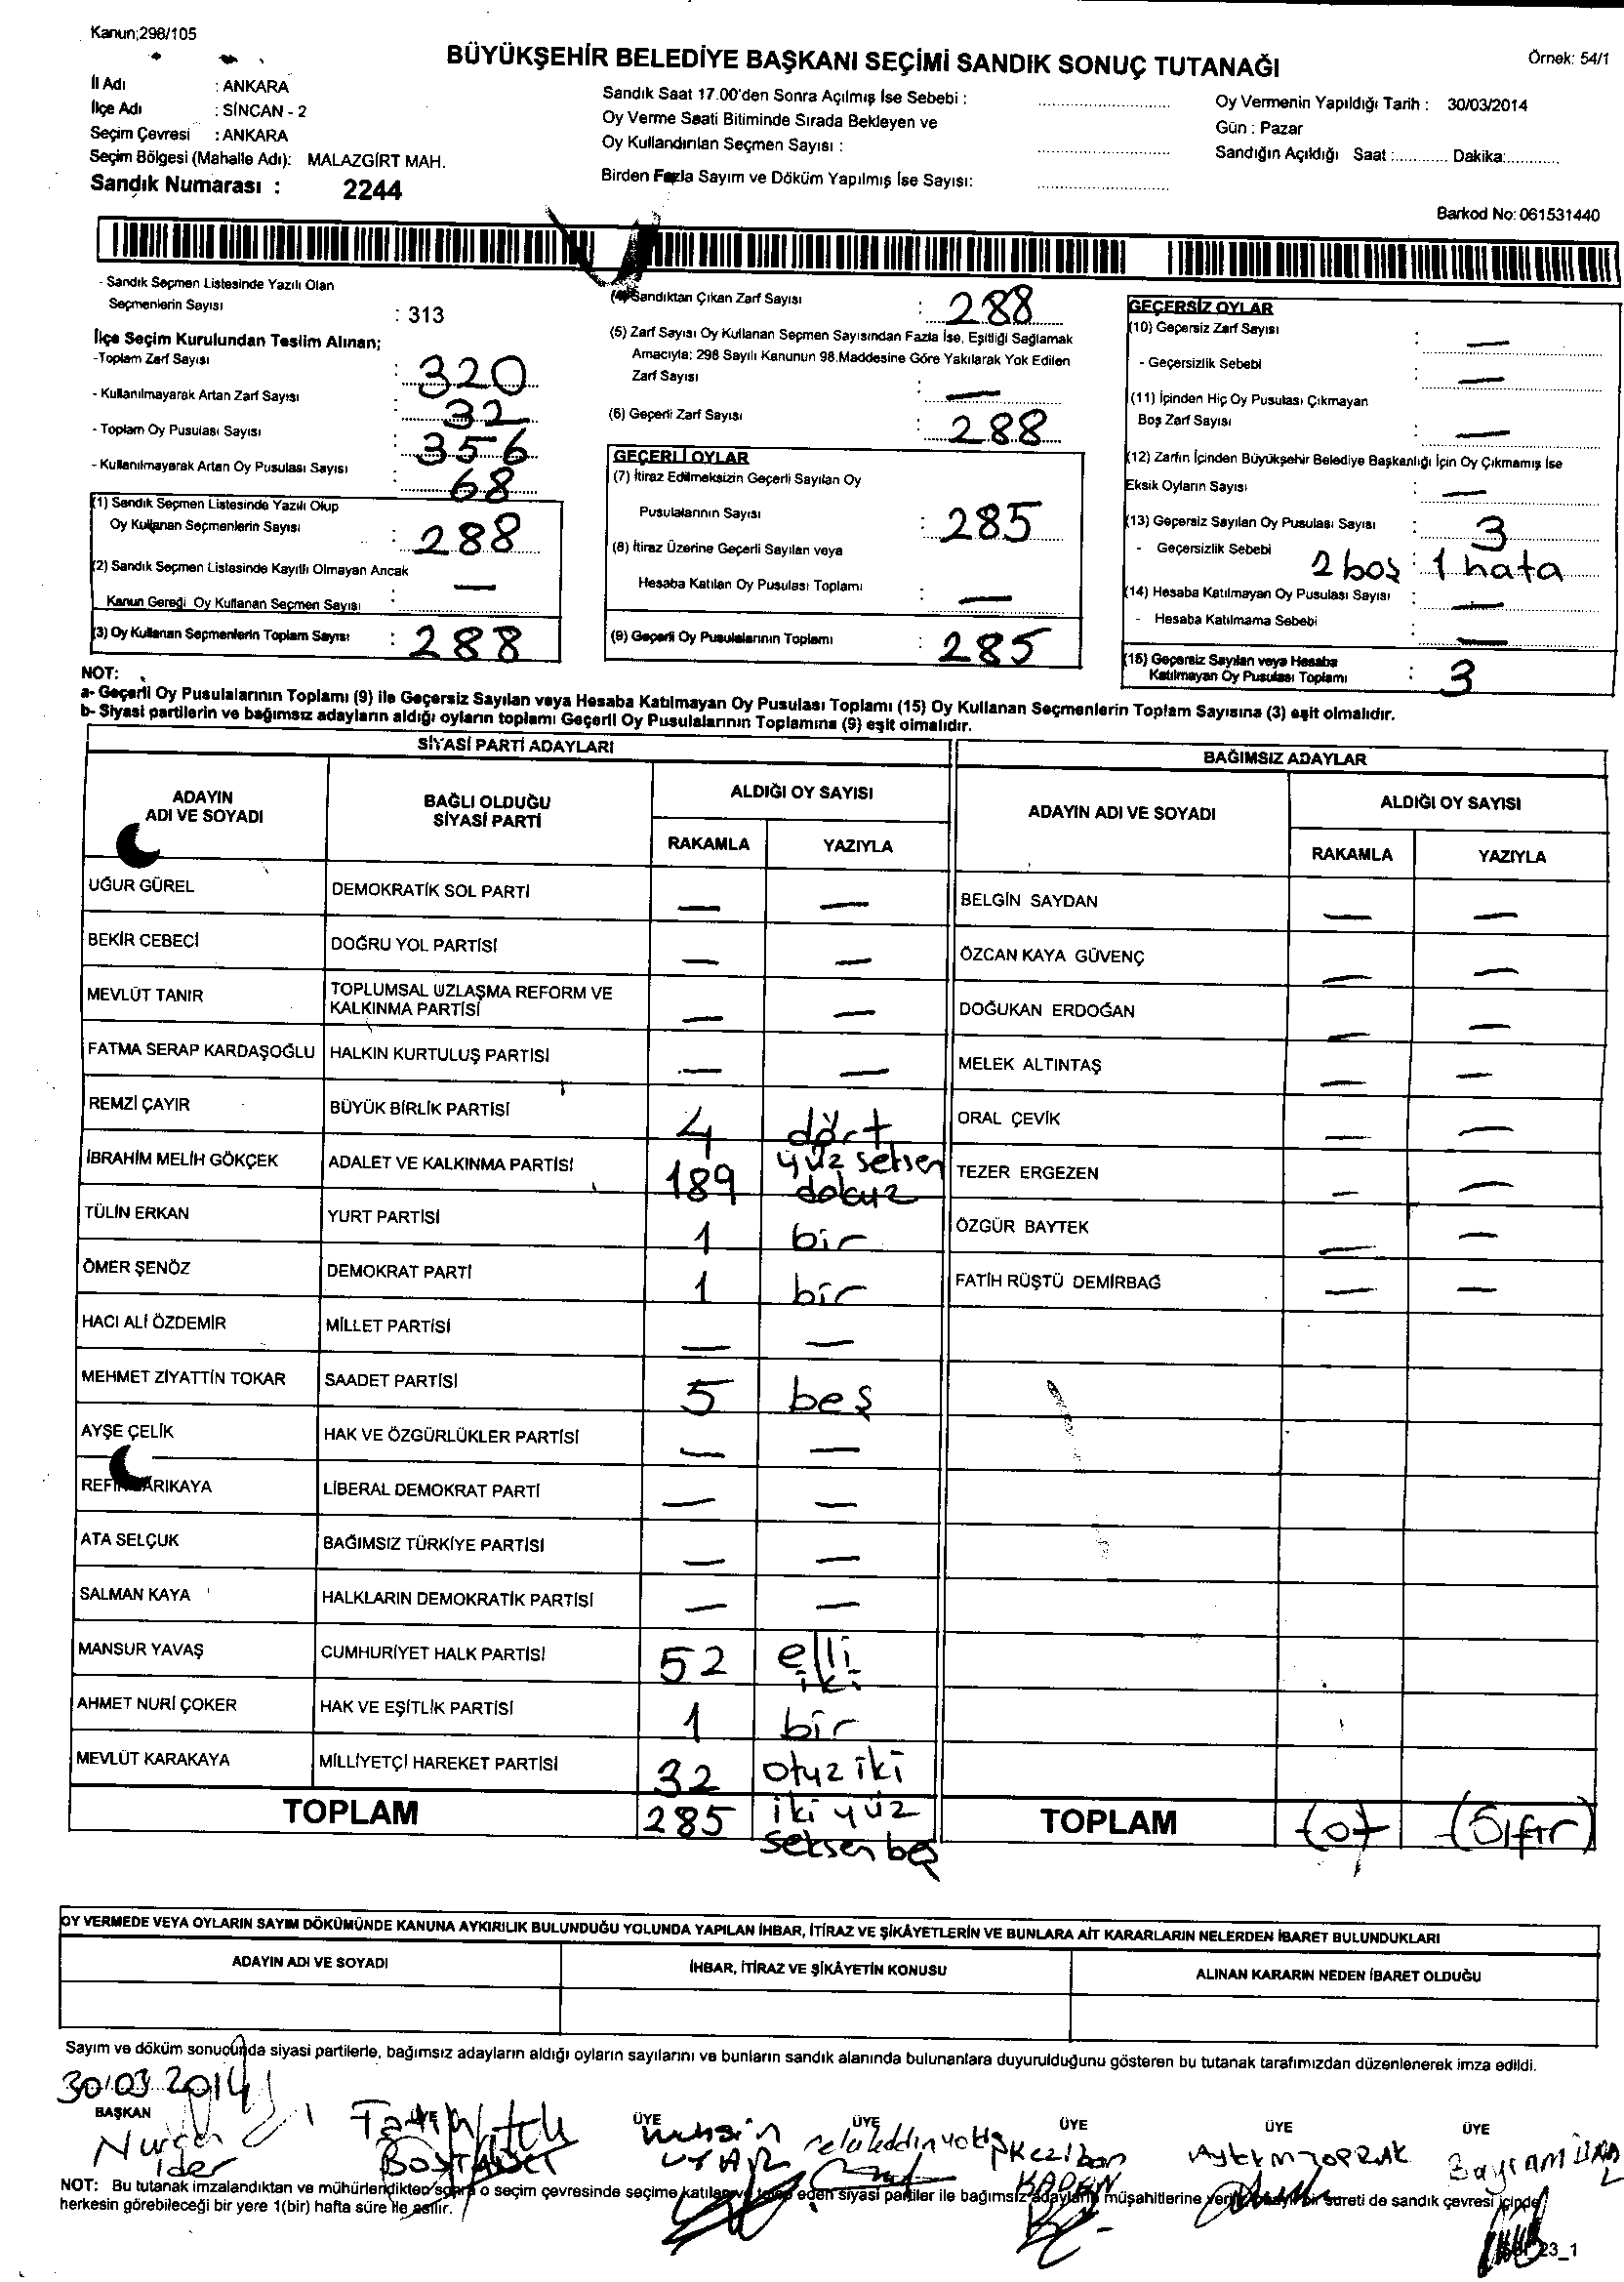 Kanun;298/105
BÜYÜKŞEHİR BELEDİYE BAŞKANI SEÇİMİ SANDIK SONUÇ TUTANAĞI
Örnek: 54/1
İl Adı : ANKARA
İlçe Adı : SİNCAN - 2
Seçim Çevresi : ANKARA
Seçim Bölgesi (Mahalle Adı): MALAZGİRT MAH.
Sandık Numarası : 2244
Sandık Saat 17.00'den Sonra Açılmış İse Sebebi :
Oy Verme Saati Bitiminde Sırada Bekleyen ve
Oy Kullandırılan Seçmen Sayısı :
Birden Fazla Sayım ve Döküm Yapılmış İse Sayısı:
Oy Vermenin Yapıldığı Tarih : 30/03/2014
Gün : Pazar
Sandığın Açıldığı Saat :............ Dakika:............
Barkod No: 061531440
- Sandık Seçmen Listesinde Yazılı Olan
Seçmenlerin Sayısı : 313
İlçe Seçim Kurulundan Teslim Alınan;
-Toplam Zarf Sayısı : 320
- Kullanılmayarak Artan Zarf Sayısı : 32
- Toplam Oy Pusulası Sayısı : 356
- Kullanılmayarak Artan Oy Pusulası Sayısı : 68
(1) Sandık Seçmen Listesinde Yazılı Olup
Oy Kullanan Seçmenlerin Sayısı : 288
(2) Sandık Seçmen Listesinde Kayıtlı Olmayan Ancak
Kanun Gereği Oy Kullanan Seçmen Sayısı : —
(3) Oy Kullanan Seçmenlerin Toplam Sayısı : 288
(4) Sandıktan Çıkan Zarf Sayısı : 288
(5) Zarf Sayısı Oy Kullanan Seçmen Sayısından Fazla İse, Eşitliği Sağlamak
Amacıyla; 298 Sayılı Kanunun 98.Maddesine Göre Yakılarak Yok Edilen
Zarf Sayısı : —
(6) Geçerli Zarf Sayısı : 288
GEÇERLİ OYLAR
(7) İtiraz Edilmeksizin Geçerli Sayılan Oy
Pusulalarının Sayısı : 285
(8) İtiraz Üzerine Geçerli Sayılan veya
Hesaba Katılan Oy Pusulası Toplamı : —
(9) Geçerli Oy Pusulalarının Toplamı : 285
GEÇERSİZ OYLAR
(10) Geçersiz Zarf Sayısı : —
- Geçersizlik Sebebi : —
(11) İçinden Hiç Oy Pusulası Çıkmayan
Boş Zarf Sayısı : —
(12) Zarfın İçinden Büyükşehir Belediye Başkanlığı İçin Oy Çıkmamış İse
Eksik Oyların Sayısı : —
(13) Geçersiz Sayılan Oy Pusulası Sayısı : 3
- Geçersizlik Sebebi 2 boş : 1 hata
(14) Hesaba Katılmayan Oy Pusulası Sayısı : —
- Hesaba Katılmama Sebebi : —
(15) Geçersiz Sayılan veya Hesaba
Katılmayan Oy Pusulası Toplamı : 3
NOT:
a- Geçerli Oy Pusulalarının Toplamı (9) ile Geçersiz Sayılan veya Hesaba Katılmayan Oy Pusulası Toplamı (15) Oy Kullanan Seçmenlerin Toplam Sayısına (3) eşit olmalıdır.
b- Siyasi partilerin ve bağımsız adayların aldığı oyların toplamı Geçerli Oy Pusulalarının Toplamına (9) eşit olmalıdır.
SİYASİ PARTİ ADAYLARI
ADAYIN ADI VE SOYADI
BAĞLI OLDUĞU SİYASİ PARTİ
ALDIĞI OY SAYISI
RAKAMLA YAZIYLA
UĞUR GÜREL DEMOKRATİK SOL PARTİ — —
BEKİR CEBECİ DOĞRU YOL PARTİSİ — —
MEVLÜT TANIR TOPLUMSAL UZLAŞMA REFORM VE KALKINMA PARTİSİ — —
FATMA SERAP KARDAŞOĞLU HALKIN KURTULUŞ PARTİSİ — —
REMZİ ÇAYIR BÜYÜK BİRLİK PARTİSİ 4 dört
İBRAHİM MELİH GÖKÇEK ADALET VE KALKINMA PARTİSİ 189 yüz seksen dokuz
TÜLİN ERKAN YURT PARTİSİ 1 bir
ÖMER ŞENÖZ DEMOKRAT PARTİ 1 bir
HACI ALİ ÖZDEMİR MİLLET PARTİSİ — —
MEHMET ZİYATTİN TOKAR SAADET PARTİSİ 5 beş
AYŞE ÇELİK HAK VE ÖZGÜRLÜKLER PARTİSİ — —
LİBERAL DEMOKRAT PARTİ — —
ATA SELÇUK BAĞIMSIZ TÜRKİYE PARTİSİ — —
SALMAN KAYA HALKLARIN DEMOKRATİK PARTİSİ — —
MANSUR YAVAŞ CUMHURİYET HALK PARTİSİ 52 elli iki
AHMET NURİ ÇOKER HAK VE EŞİTLİK PARTİSİ 1 bir
MEVLÜT KARAKAYA MİLLİYETÇİ HAREKET PARTİSİ 32 otuz iki
TOPLAM 285 iki yüz seksen beş
BAĞIMSIZ ADAYLAR
ADAYIN ADI VE SOYADI
ALDIĞI OY SAYISI
RAKAMLA YAZIYLA
BELGİN SAYDAN — —
ÖZCAN KAYA GÜVENÇ — —
DOĞUKAN ERDOĞAN — —
MELEK ALTINTAŞ — —
ORAL ÇEVİK — —
TEZER ERGEZEN — —
ÖZGÜR BAYTEK — —
FATİH RÜŞTÜ DEMİRBAĞ — —
TOPLAM (0) (Sıfır)
OY VERMEDE VEYA OYLARIN SAYIM DÖKÜMÜNDE KANUNA AYKIRILIK BULUNDUĞU YOLUNDA YAPILAN İHBAR, İTİRAZ VE ŞİKÂYETLERİN VE BUNLARA AİT KARARLARIN NELERDEN İBARET BULUNDUKLARI
ADAYIN ADI VE SOYADI İHBAR, İTİRAZ VE ŞİKÂYETİN KONUSU ALINAN KARARIN NEDEN İBARET OLDUĞU
Sayım ve döküm sonucunda siyasi partilerle, bağımsız adayların aldığı oyların sayılarını ve bunların sandık alanında bulunanlara duyurulduğunu gösteren bu tutanak tarafımızdan düzenlenerek imza edildi.
30.03.2014
BAŞKAN ÜYE ÜYE ÜYE ÜYE ÜYE ÜYE
Muhsin UYAR
Keziban
Aytekin TOPRAK
Bayram
NOT: Bu tutanak imzalandıktan ve mühürlendikten sonra o seçim çevresinde seçime katılan ve talep eden siyasi partiler ile bağımsız adayların müşahitlerine sureti de sandık çevresi içinde
herkesin görebileceği bir yere 1(bir) hafta süre ile asılır.